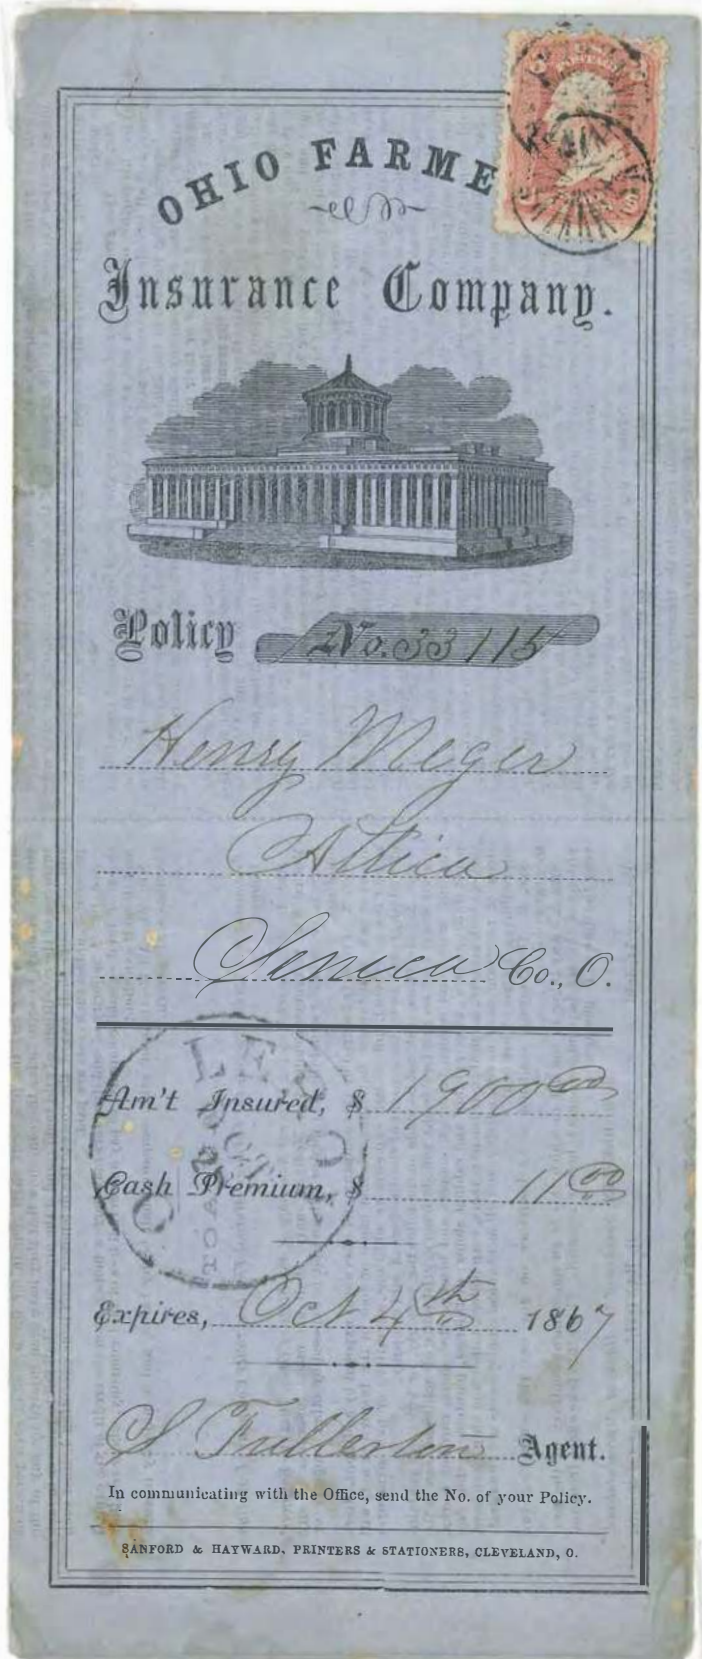 OHIO FARME
Insurance Company.
Policy No. 33115
Henry Meyer
Attica
Seneca Co., O.
Am't Insured, $ 1900 00
Cash Premium, $ 11 00
Expires, Oct 4th 1867
S Fullerton Agent.
In communicating with the Office, send the No. of your Policy.
SANFORD & HAYWARD, PRINTERS & STATIONERS, CLEVELAND, O.